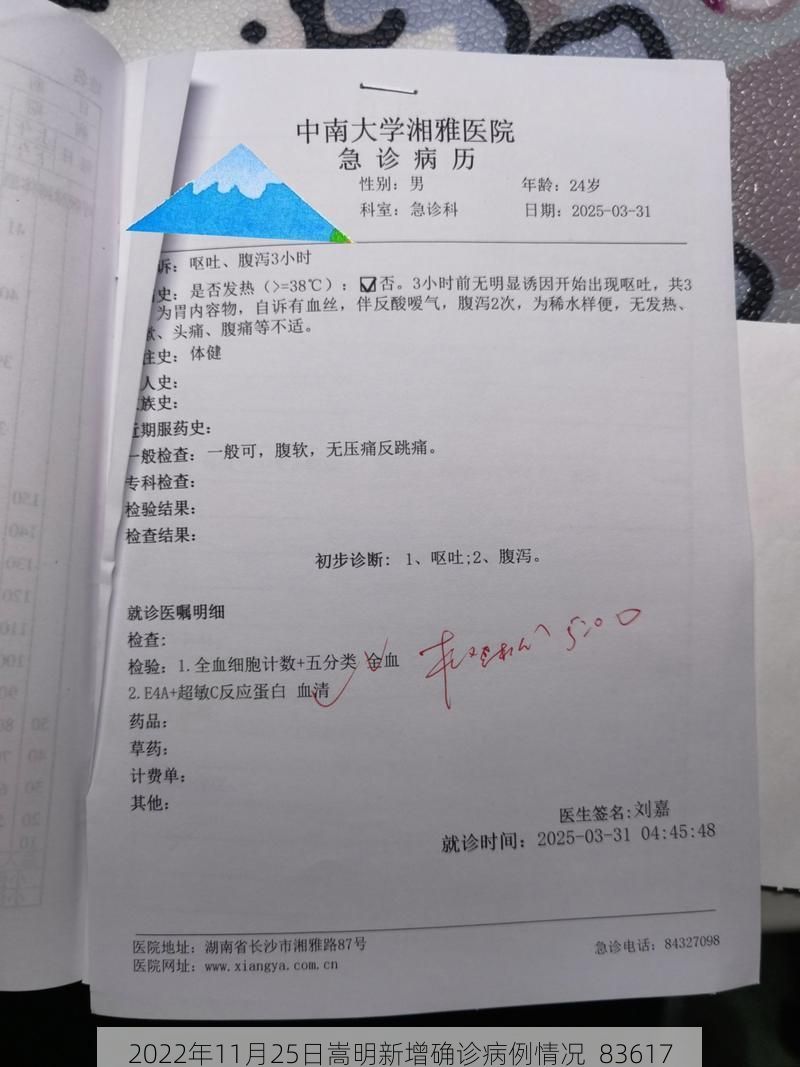 中南大学湘雅医院
急诊病历
性别：男 年龄：24岁
科室：急诊科 日期：2025-03-31
诉：呕吐、腹泻3小时
史：是否发热（>=38℃）：☑否。3小时前无明显诱因开始出现呕吐，共3
为胃内容物，自诉有血丝，伴反酸嗳气，腹泻2次，为稀水样便，无发热、
、头痛、腹痛等不适。
往史：体健
人史：
族史：
近期服药史：
一般检查：一般可，腹软，无压痛反跳痛。
专科检查：
检验结果：
检查结果：
初步诊断：1、呕吐;2、腹泻。
就诊医嘱明细
检查：
检验：1.全血细胞计数+五分类 全血
2.E4A+超敏C反应蛋白 血清
药品：
草药：
计费单：
其他：
医生签名:刘嘉
就诊时间：2025-03-31 04:45:48
医院地址：湖南省长沙市湘雅路87号 急诊电话：84327098
医院网址：www.xiangya.com.cn
2022年11月25日嵩明新增确诊病例情况 83617